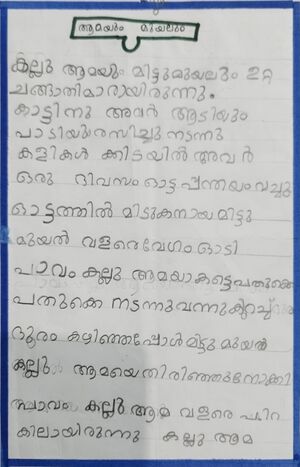 ആമയും മുയലും
കല്ലു ആമയും മിട്ടുമുയലും ഉറ്റ
ചങ്ങാതിമാരായിരുന്നു.
കാട്ടിനു അവർ ആടിയും
പാടിയുംരസിച്ചു നടന്നു
കളികൾ ക്കിടയിൽ അവർ
ഒരു ദിവസം ഓട്ട പ്പന്തയം വച്ചു
ഓട്ടത്തിൽ മിടുകനായ മിട്ടു
മുയൽ വളരെവേഗം ഓടി
പാവം കല്ലു ആമയാകട്ടെപതുക്കെ
പതുക്കെ നടന്നുവന്നുകുറച്ച്
ദൂരം കഴിഞ്ഞപ്പോൾമിട്ടു മുയൽ
കല്ലു ആമയെതിരിഞ്ഞുനോക്കി
പാവം കല്ലു ആമ വളരെ പിറ
കിലായിരുന്നു കല്ലു ആമ